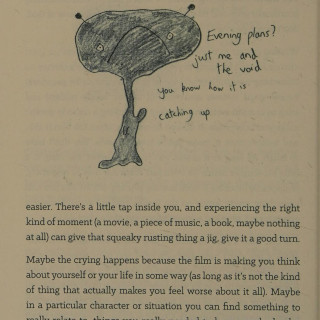 Evening plans?
just me and
the void
you know how it is
catching up
easier. There's a little tap inside you, and experiencing the right
kind of moment (a movie, a piece of music, a book, maybe nothing
at all) can give that squeaky rusting thing a jig, give it a good turn.
Maybe the crying happens because the film is making you think
about yourself or your life in some way (as long as it's not the kind
of thing that actually makes you feel worse about it all). Maybe
in a particular character or situation you can find something to